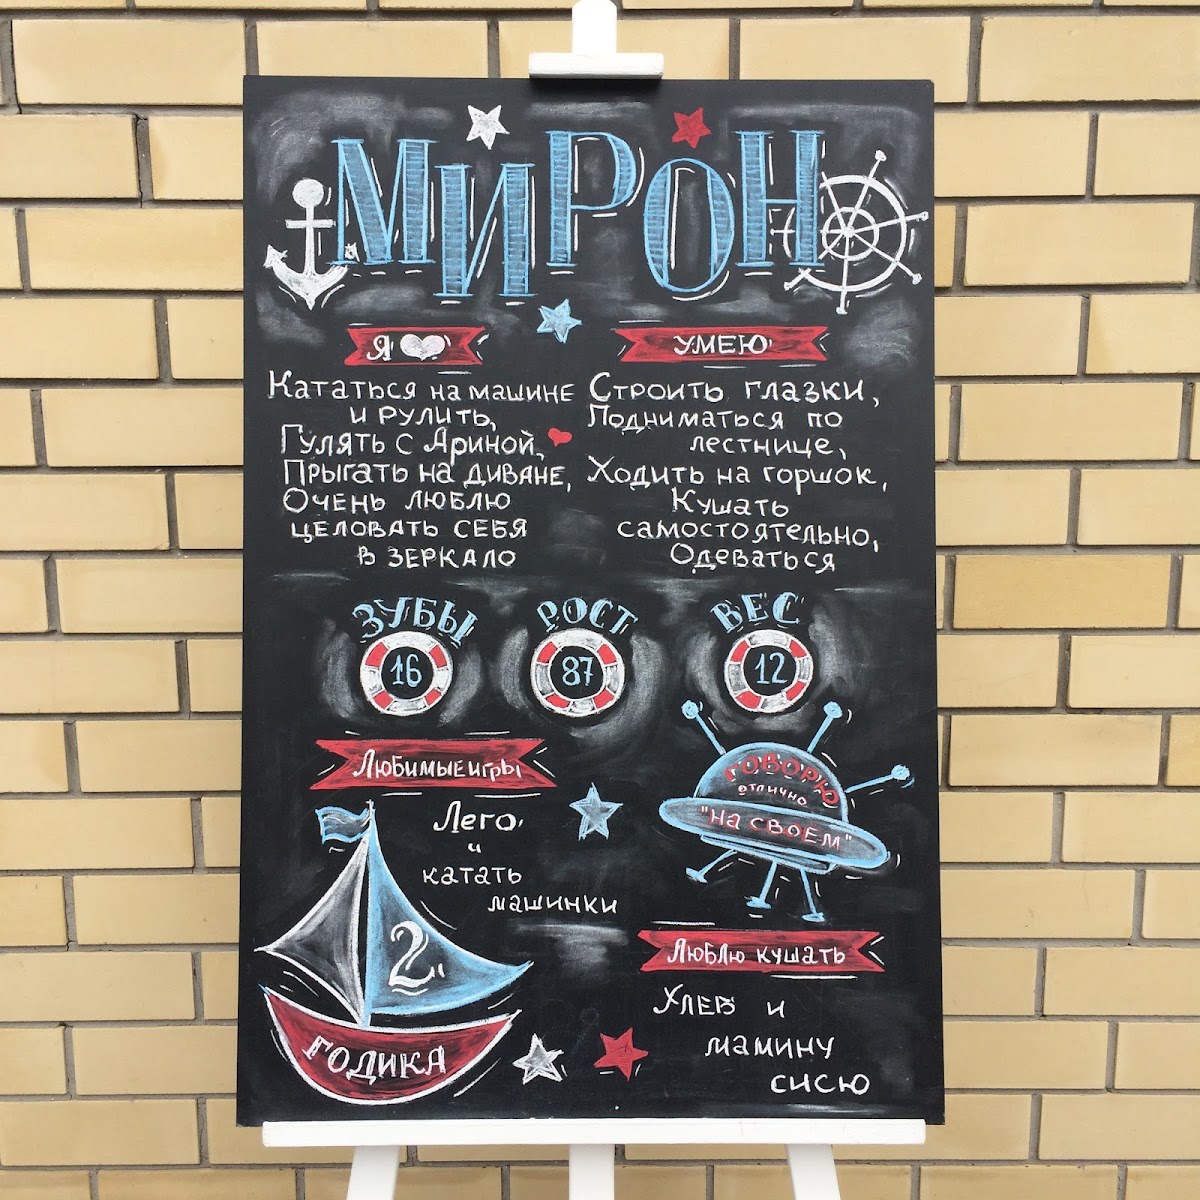 МИРОН
Я
Кататься на машине
и рулить,
Гулять с Ариной,
Прыгать на диване,
Очень люблю
целовать себя
в зеркало
УМЕЮ
Строить глазки,
Подниматься по
лестнице,
Ходить на горшок,
Кушать
самостоятельно,
Одеваться
ЗУБЫ
16
РОСТ
87
ВЕС
12
Любимые игры
Лего
и
катать
машинки
2
ГОДИКА
ГОВОРЮ
отлично
"НА СВОЕМ"
Люблю кушать
Хлеб и
мамину
сисю